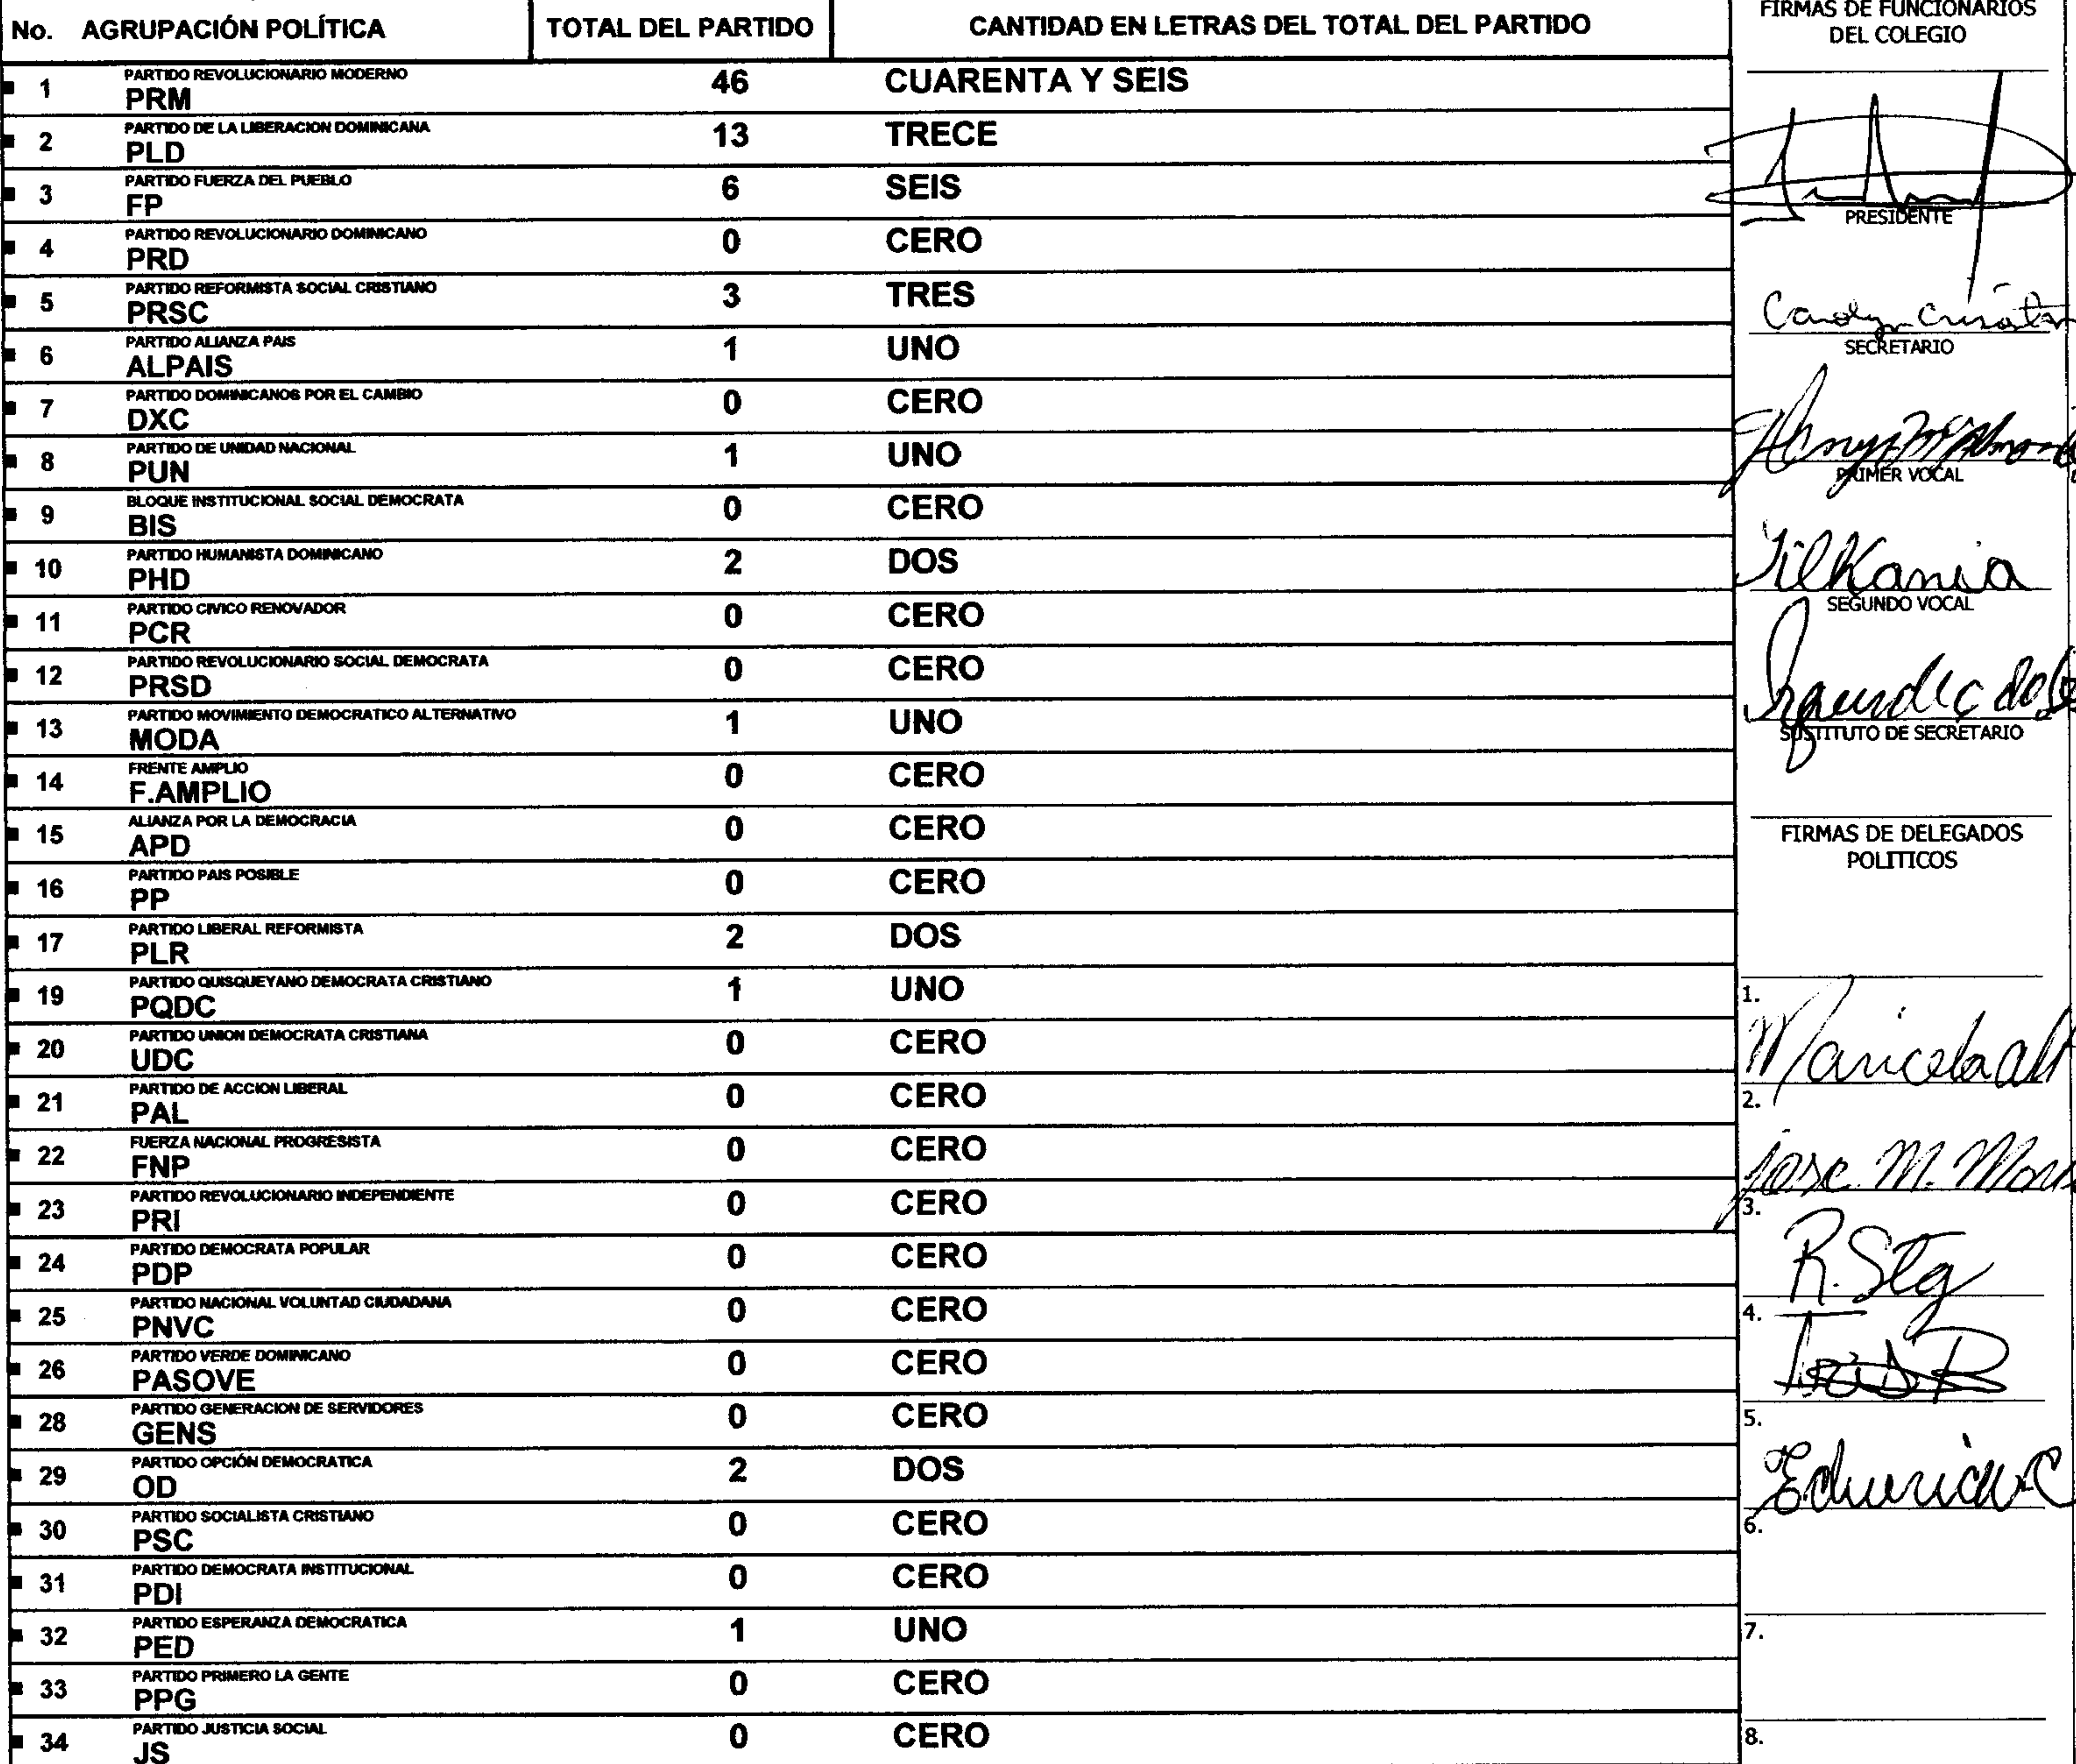 No. AGRUPACIÓN POLÍTICA TOTAL DEL PARTIDO CANTIDAD EN LETRAS DEL TOTAL DEL PARTIDO
1 PARTIDO REVOLUCIONARIO MODERNO
PRM 46 CUARENTA Y SEIS
2 PARTIDO DE LA LIBERACION DOMINICANA
PLD 13 TRECE
3 PARTIDO FUERZA DEL PUEBLO
FP 6 SEIS
4 PARTIDO REVOLUCIONARIO DOMINICANO
PRD 0 CERO
5 PARTIDO REFORMISTA SOCIAL CRISTIANO
PRSC 3 TRES
6 PARTIDO ALIANZA PAIS
ALPAIS 1 UNO
7 PARTIDO DOMINICANOS POR EL CAMBIO
DXC 0 CERO
8 PARTIDO DE UNIDAD NACIONAL
PUN 1 UNO
9 BLOQUE INSTITUCIONAL SOCIAL DEMOCRATA
BIS 0 CERO
10 PARTIDO HUMANISTA DOMINICANO
PHD 2 DOS
11 PARTIDO CIVICO RENOVADOR
PCR 0 CERO
12 PARTIDO REVOLUCIONARIO SOCIAL DEMOCRATA
PRSD 0 CERO
13 PARTIDO MOVIMIENTO DEMOCRATICO ALTERNATIVO
MODA 1 UNO
14 FRENTE AMPLIO
F.AMPLIO 0 CERO
15 ALIANZA POR LA DEMOCRACIA
APD 0 CERO
16 PARTIDO PAIS POSIBLE
PP 0 CERO
17 PARTIDO LIBERAL REFORMISTA
PLR 2 DOS
19 PARTIDO QUISQUEYANO DEMOCRATA CRISTIANO
PQDC 1 UNO
20 PARTIDO UNION DEMOCRATA CRISTIANA
UDC 0 CERO
21 PARTIDO DE ACCION LIBERAL
PAL 0 CERO
22 FUERZA NACIONAL PROGRESISTA
FNP 0 CERO
23 PARTIDO REVOLUCIONARIO INDEPENDIENTE
PRI 0 CERO
24 PARTIDO DEMOCRATA POPULAR
PDP 0 CERO
25 PARTIDO NACIONAL VOLUNTAD CIUDADANA
PNVC 0 CERO
26 PARTIDO VERDE DOMINICANO
PASOVE 0 CERO
28 PARTIDO GENERACION DE SERVIDORES
GENS 0 CERO
29 PARTIDO OPCIÓN DEMOCRATICA
OD 2 DOS
30 PARTIDO SOCIALISTA CRISTIANO
PSC 0 CERO
31 PARTIDO DEMOCRATA INSTITUCIONAL
PDI 0 CERO
32 PARTIDO ESPERANZA DEMOCRATICA
PED 1 UNO
33 PARTIDO PRIMERO LA GENTE
PPG 0 CERO
34 PARTIDO JUSTICIA SOCIAL
JS 0 CERO
FIRMAS DE FUNCIONARIOS
DEL COLEGIO
PRESIDENTE
SECRETARIO
PRIMER VOCAL
SEGUNDO VOCAL
SUSTITUTO DE SECRETARIO
FIRMAS DE DELEGADOS
POLITICOS
1.
Maricela
2.
Jose M.
3.
R. Stg
4.
5.
6.
7.
8.